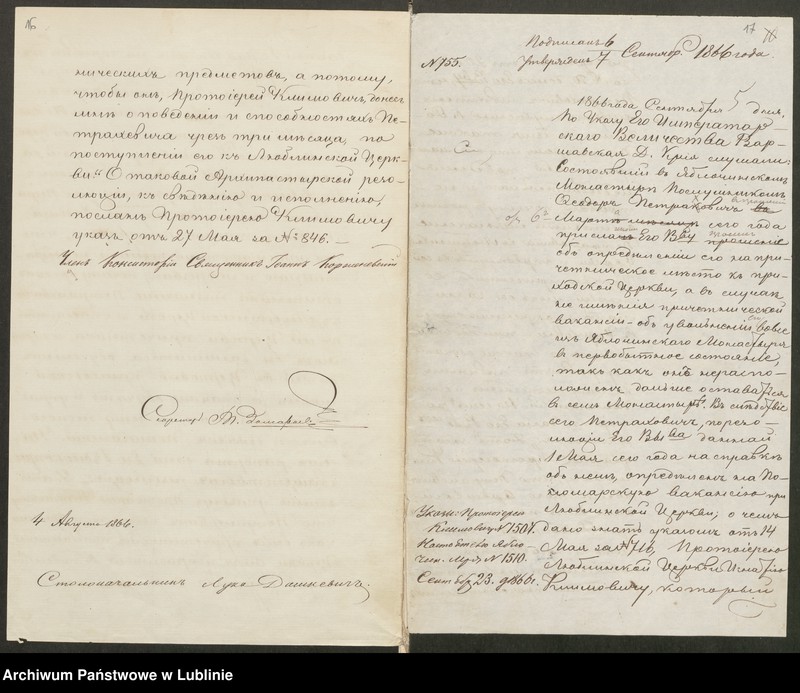 16
ническихъ предметовъ, а потому,
чтобы онъ, Протоіерей Климовичъ, донесъ
мнѣ о поведеніи и способностяхъ Пе-
траховича чрезъ три мѣсяца, по
поступленіи его къ Люблинской Церк-
ви." О таковой Архипастырской резо-
люціи, къ свѣдѣнію и исполненію,
посланъ Протоіерею Климовичу
указъ отъ 27 Мая за № 846. —
Членъ Консисторіи Священникъ Іоаннъ
Секретарь
4 Августа 1866.
Столоначальникъ Лука Дашкевичъ.
17
Подписанъ 6
Утвержденъ 7 Сентябр. 1866 года.
№ 755.
1866 года Сентября 5 дня,
По Указу Его Император-
скаго Величества Вар-
шавская Д. Кіія слушали:
Состоявшій въ Яблочинскомъ
Монастырѣ Послушникомъ
Ѳеодоръ Петраховичъ
Марта сего года
прислалъ Его Вву прошеніе
объ опредѣленіи его на при-
четническое мѣсто къ при-
ходской Церкви, а въ случаѣ
не имѣнія причетнической
вакансіи – объ увольненіи вовсе
изъ Яблочинскаго Монастыря
въ первобытное состояніе,
такъ какъ онъ нераспо-
ложенъ дальше оставаться
въ семъ Монастырѣ. Въ слѣдствіе
сего Петраховичъ, резо-
люціею Его Вва данною
1 Мая сего года на справкѣ
объ немъ, опредѣленъ на По-
номарскую вакансію при
Люблинской Церкви; о чемъ
дано знать указомъ отъ 14
Мая за № 716, Протоіерею
Люблинской Церкви Игнатію
Климовичу, который
Указы: Протоіерею
Климовичу № 1501.
Настоятелю Ябло-
чин. Мря № 1510.
Сентябр. 23. д. 1866 г.
Archiwum Państwowe w Lublinie